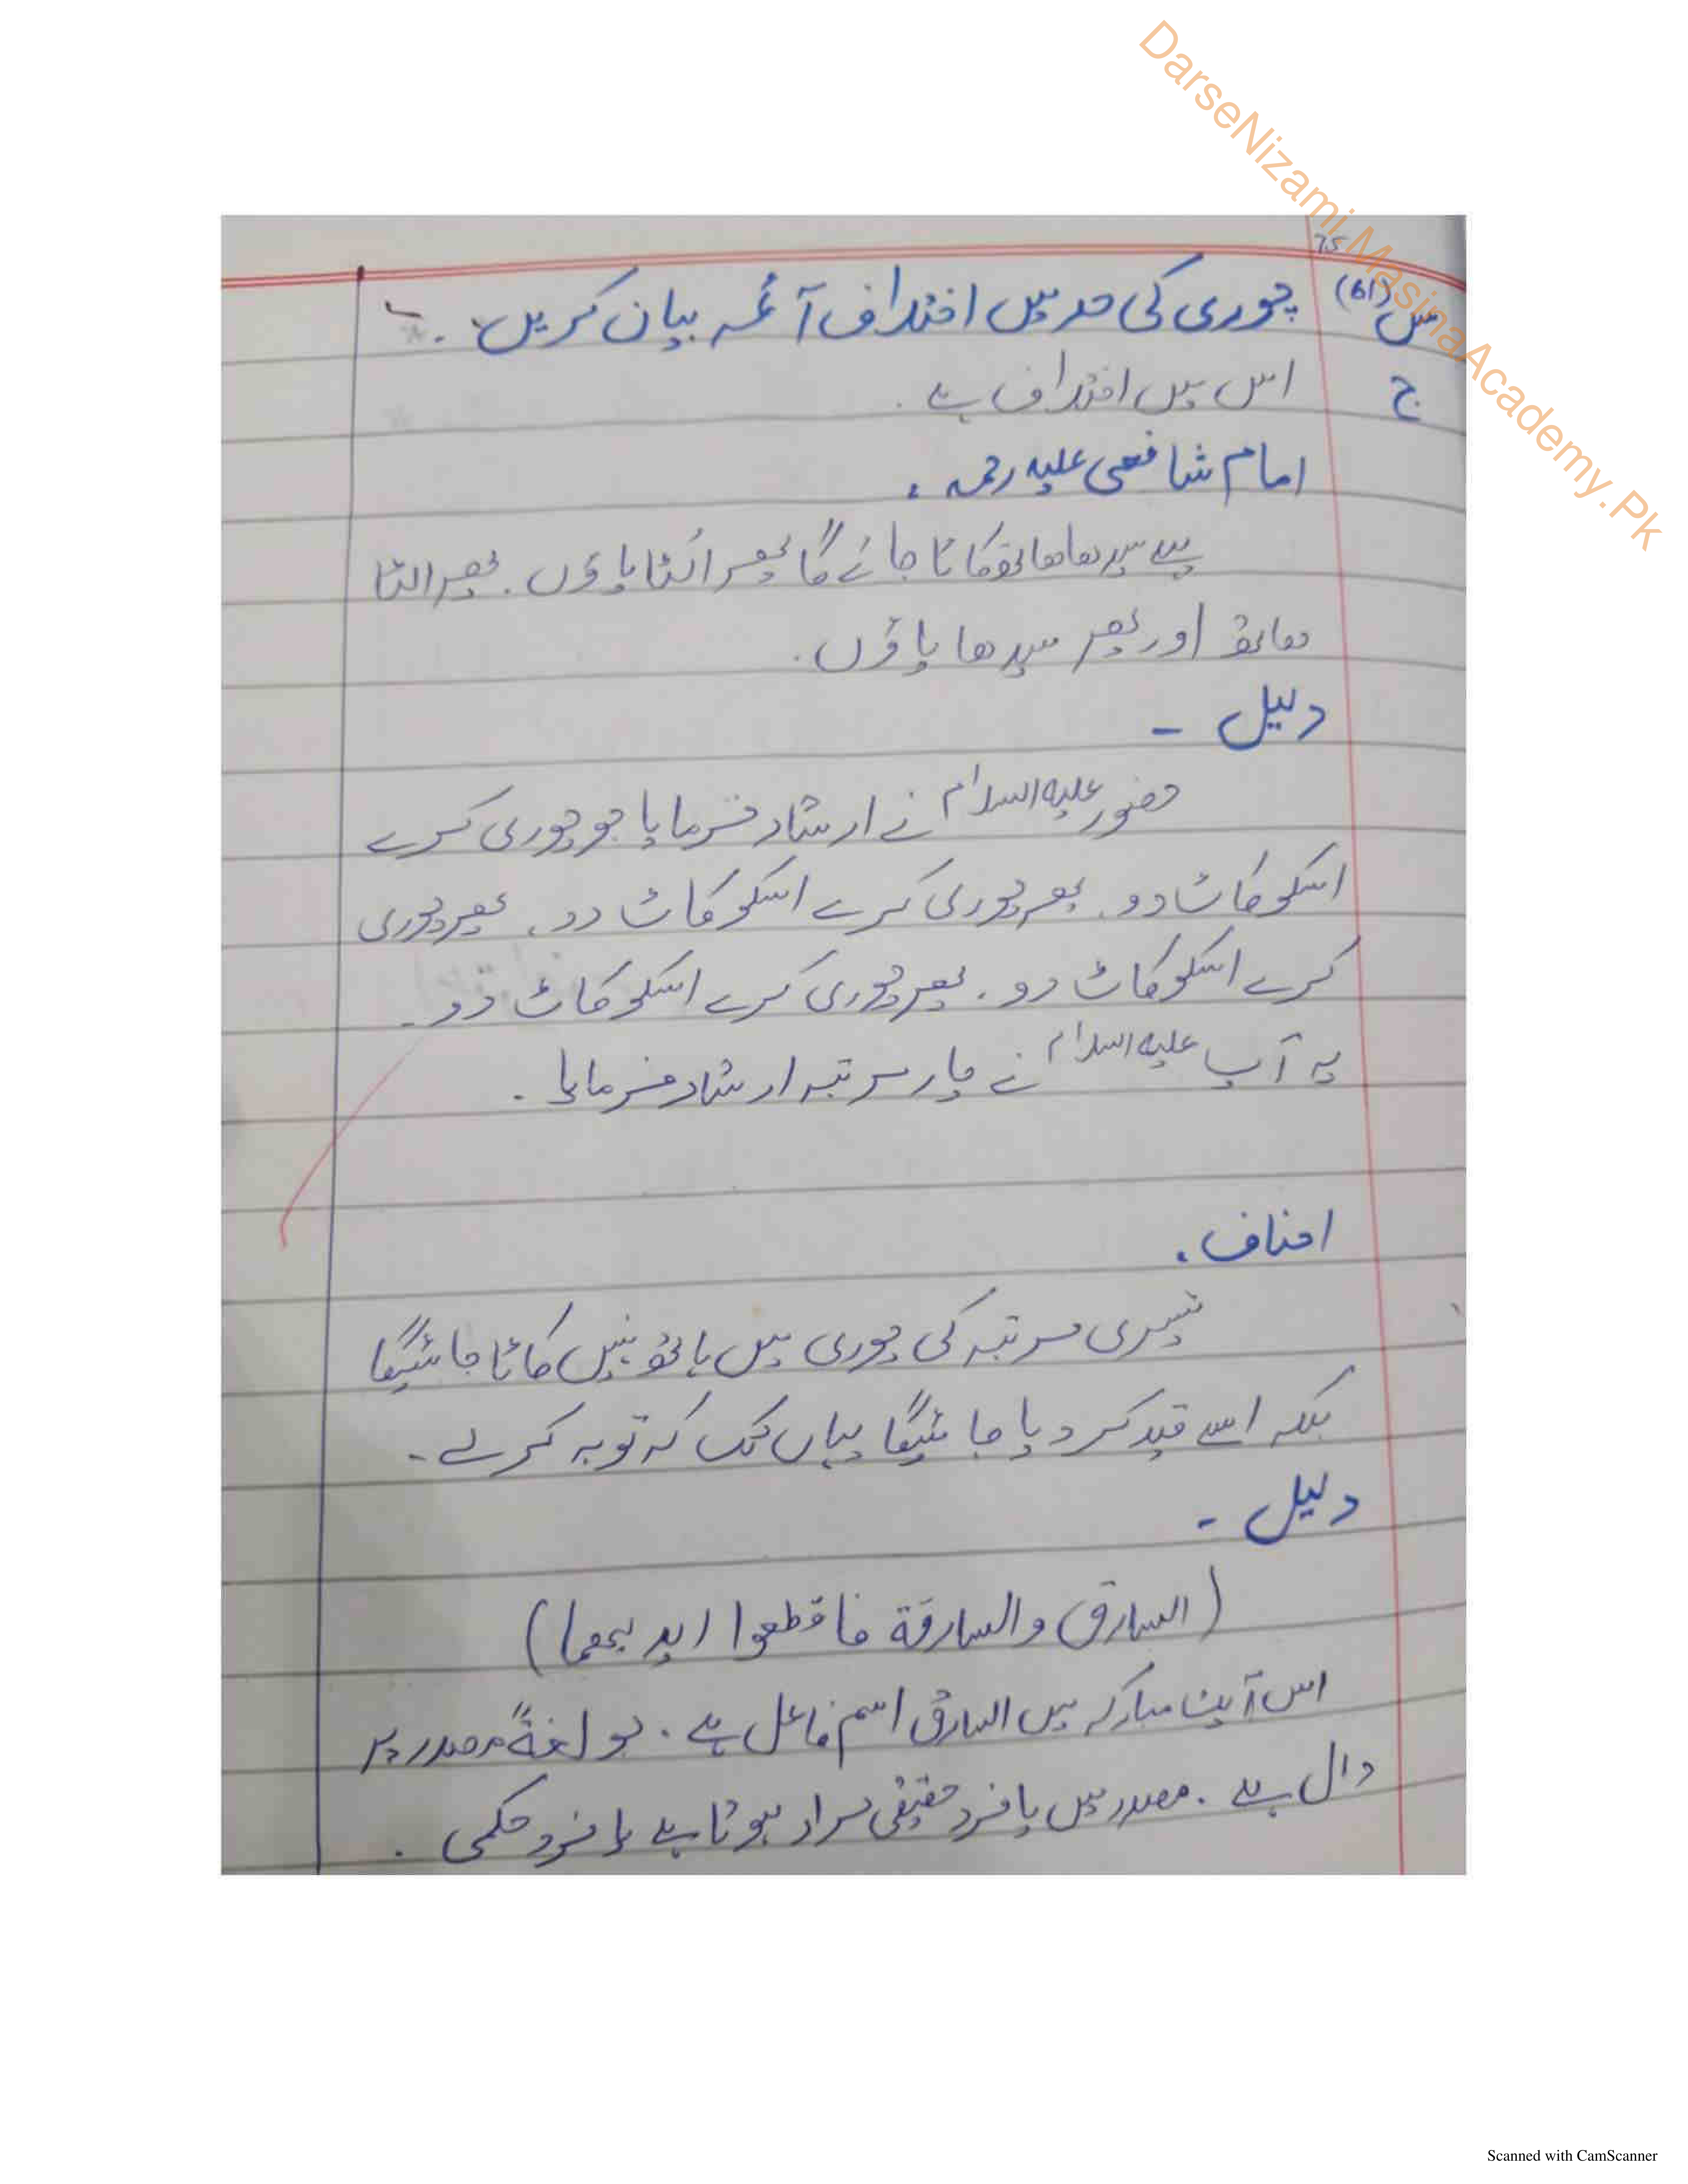 DarseNizami.MasinaAcademy.Pk
75
س(61) چوری کی حد میں اختلاف آئمہ بیان کریں ۔
ج اس میں اختلاف ہے ۔
امام شافعی علیہ رحمہ ۔
پہلے سیدھا ھاتھ کاٹا جائے گا پھر اُلٹا پاؤں ۔ پھر الٹا
ھاتھ اور پھر سیدھا پاؤں ۔
دلیل ۔
حضور علیہ السلام نے ارشاد فرمایا جو چوری کرے
اسکو کاٹ دو ۔ پھر چوری کرے اسکو کاٹ دو ۔ پھر چوری
کرے اسکو کاٹ دو ۔ پھر چوری کرے اسکو کاٹ دو ۔
یہ آپ علیہ السلام نے چار مرتبہ ارشاد فرمایا ۔
احناف ۔
تیسری مرتبہ کی چوری میں ہاتھ نہیں کاٹا جائیگا
بلکہ اسے قید کر دیا جائیگا یہاں تک کہ توبہ کرلے ۔
دلیل ۔
(السارق والسارقة فاقطعوا ایدیھما)
اس آیت مبارکہ میں السارق اسم فاعل ہے ۔ جو لغةً مصدر پر
دال ہے ۔ مصدر میں یا فرد حقیقی مراد ہوتا ہے یا فرد حکمی ۔
Scanned with CamScanner